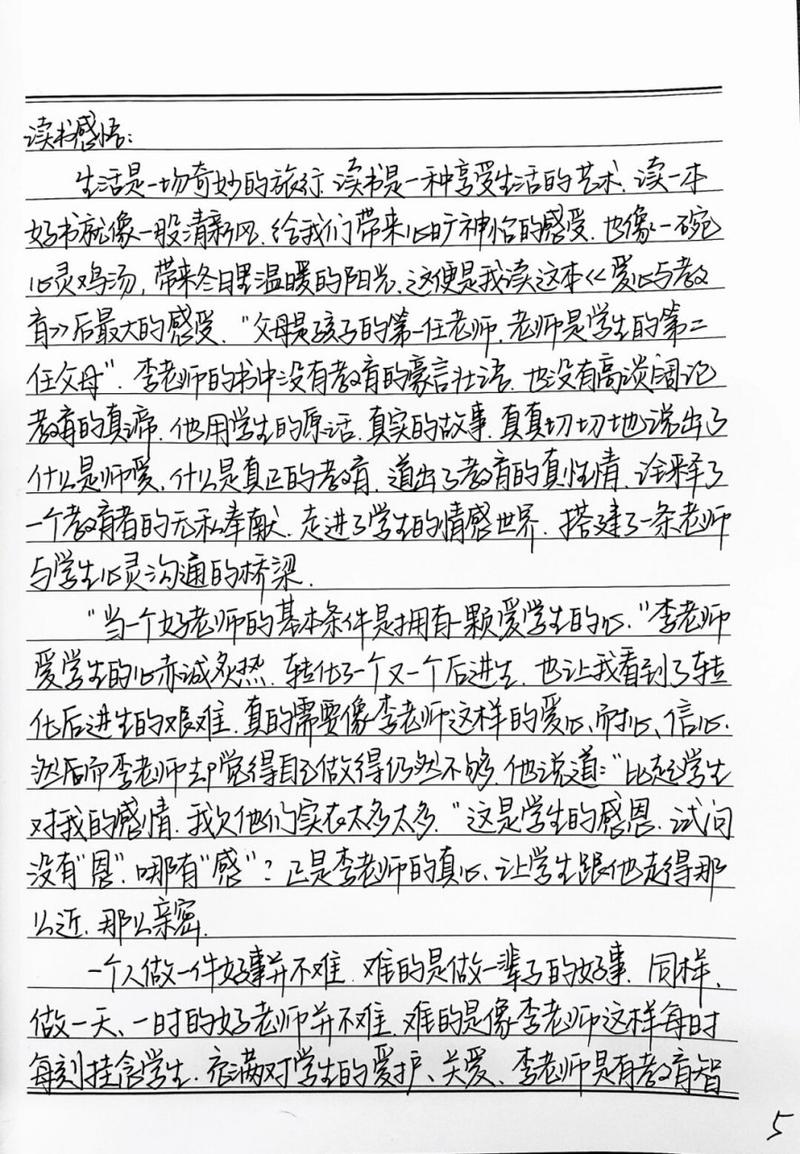 读书感悟：
生活是一场奇妙的旅行．读书是一种享受生活的艺术．读一本
好书就像一股清新风．给我们带来心旷神怡的感受．也像一碗
心灵鸡汤，带来冬日里温暖的阳光．这便是我读这本《爱心与教
育》后最大的感受．“父母是孩子的第一任老师．老师是学生的第二
任父母”．李老师的书中没有教育的豪言壮语．也没有高谈阔论
教育的真谛．他用学生的原话．真实的故事．真真切切地说出了
什么是师爱、什么是真正的教育．道出了教育的真性情．诠释了
一个教育者的无私奉献．走进了学生的情感世界．搭建了一条老师
与学生心灵沟通的桥梁．
“当一个好老师的基本条件是拥有一颗爱学生的心．”李老师
爱学生的心赤诚炙热．转化了一个又一个后进生．也让我看到了转
化后进生的艰难．真的需要像李老师这样的爱心、耐心、信心．
然后而李老师却觉得自己做得仍然不够．他说道：“比起学生
对我的感情．我欠他们实在太多太多．”这是学生的感恩．试问
没有“恩”．哪有“感”？正是李老师的真心、让学生跟他走得那
么近．那么亲密．
一个人做一件好事并不难．难的是做一辈子的好事．同样、
做一天、一时的好老师并不难．难的是像李老师这样每时
每刻挂念学生．充满对学生的爱护、关爱、李老师是有教育智
5